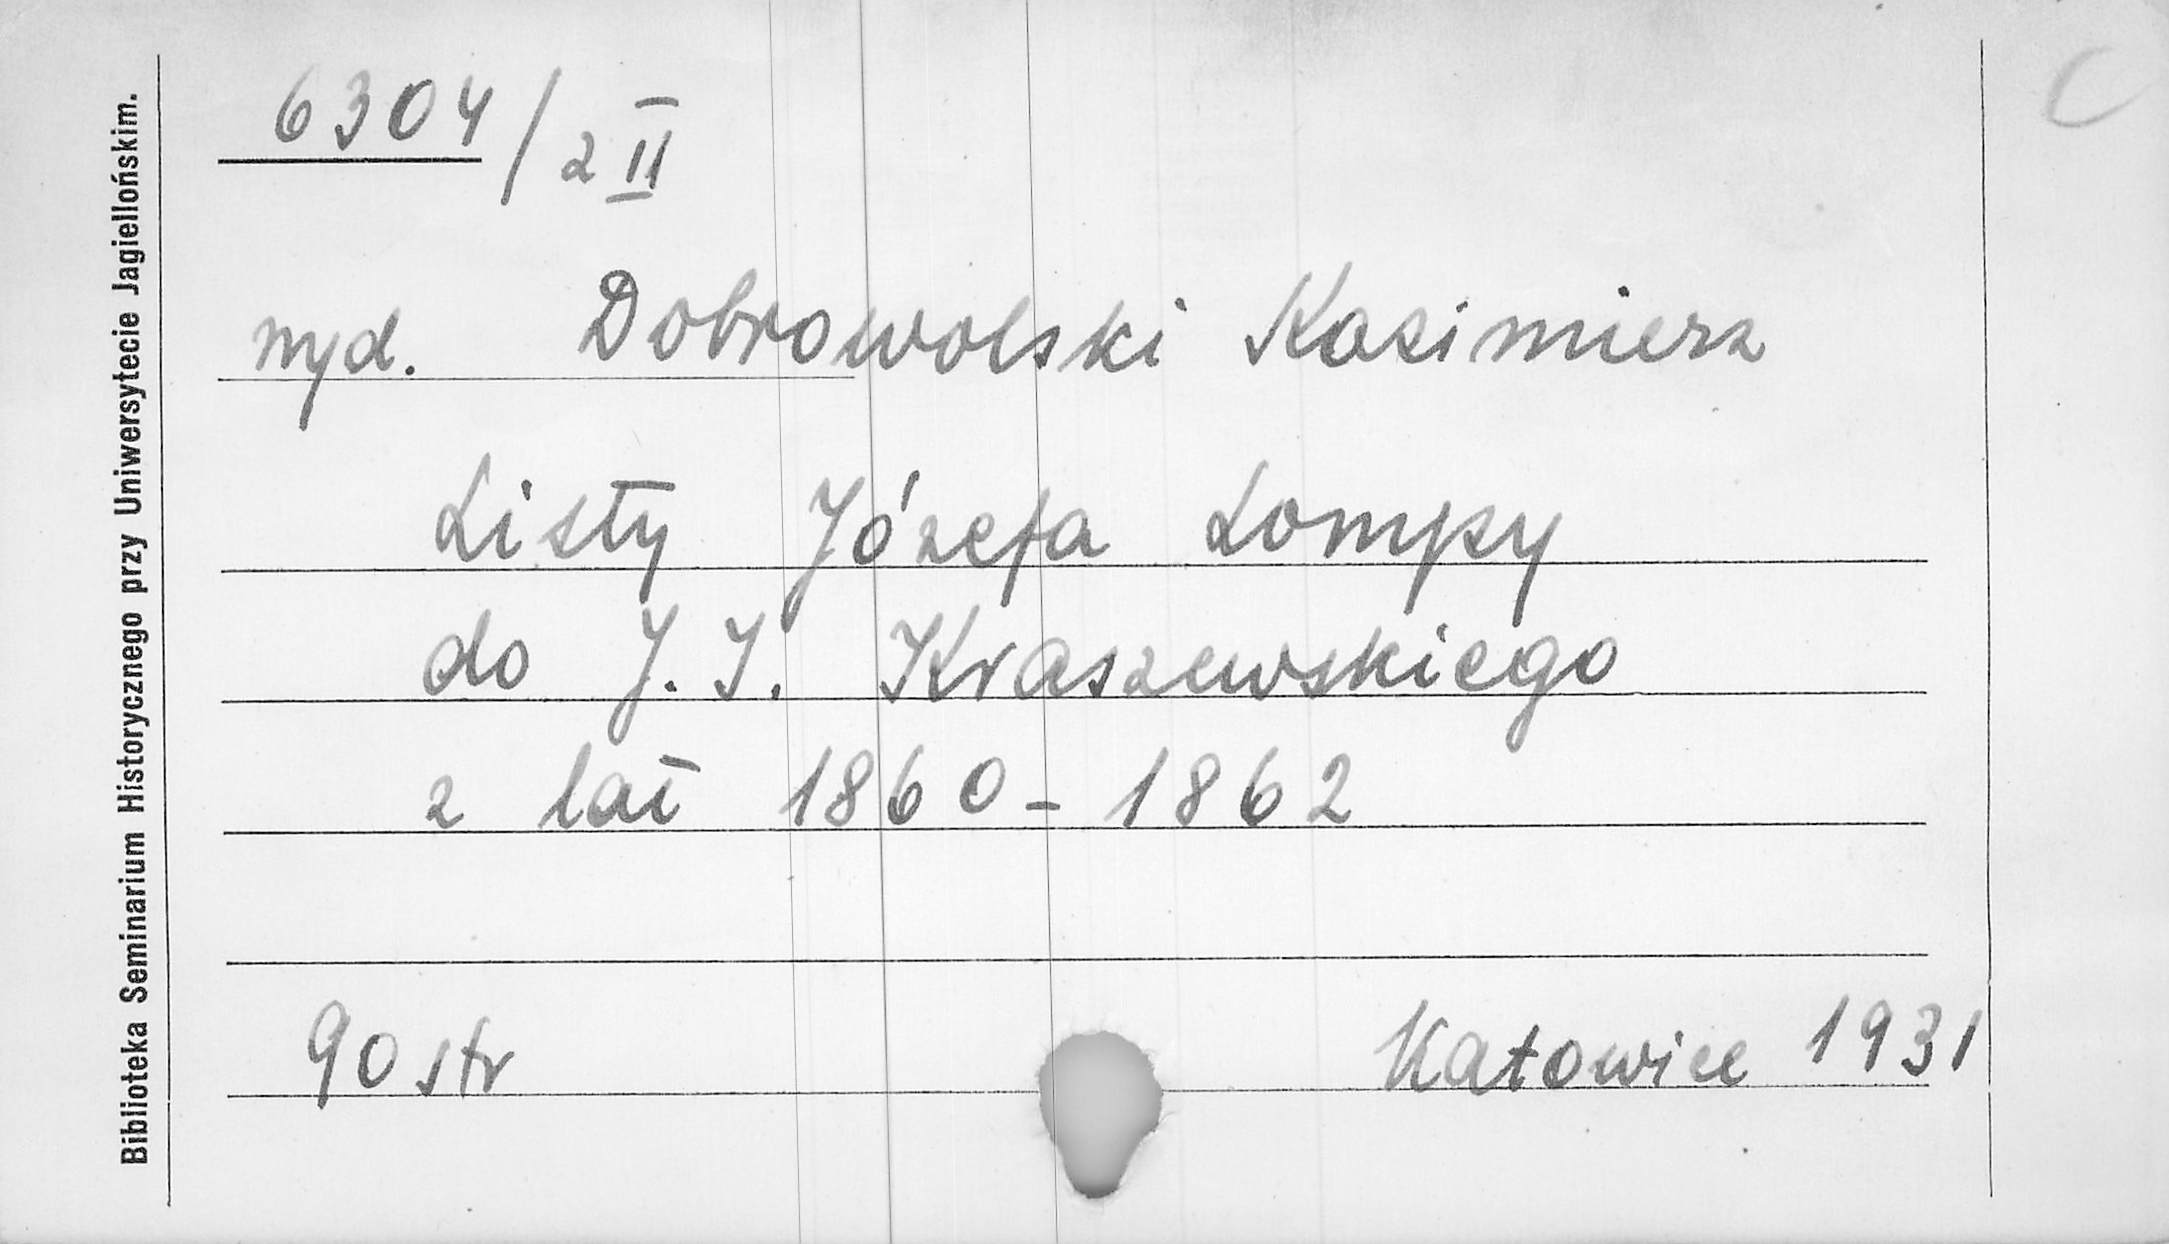 Biblioteka Seminarium Historycznego przy Uniwersytecie Jagiellońskim.
C
6304/2 II
wyd. Dobrowolski Kazimierz
Listy Józefa Lompy
do J. I. Kraszewskiego
z lat 1860-1862
90 str Katowice 1931